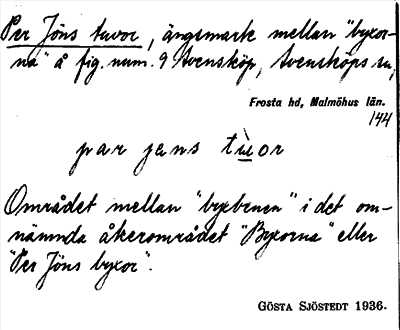 Per Jöns tuvor, ängsmark mellan "byxor-
na" å fig. num. 9 Svensköp, Svensköps sn,
Frosta hd, Malmöhus län.
144
par jens tuor
Området mellan "byxbenen" i det om-
nämnda åkerområdet "Byxorna" eller
"Per Jöns byxor".
GÖSTA SJÖSTEDT 1936.